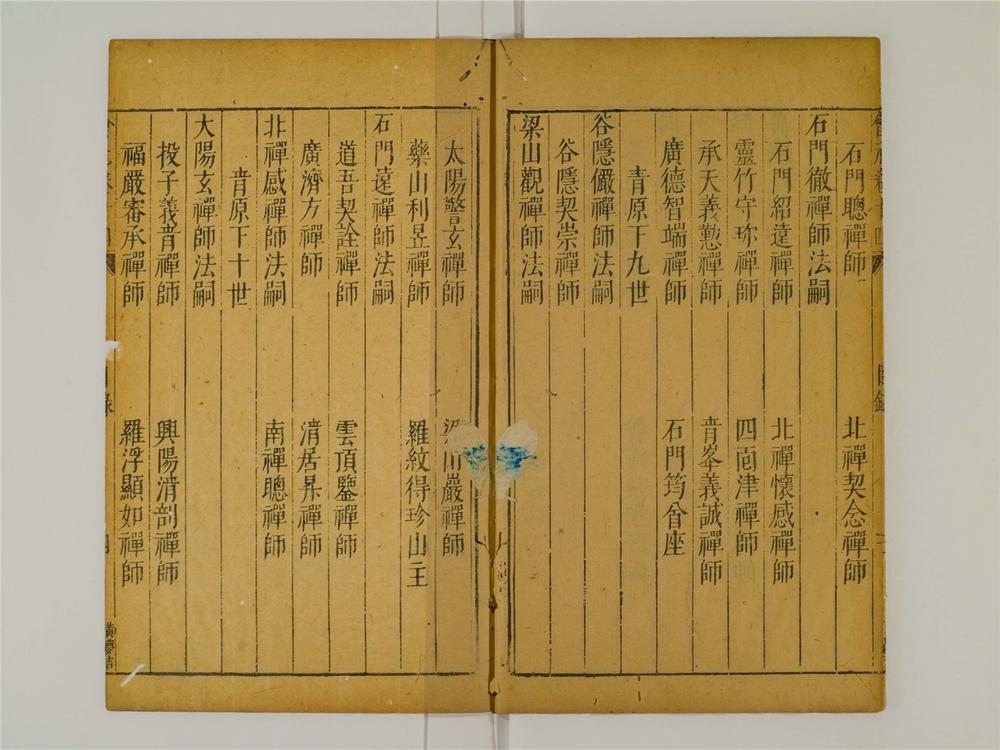 石門聰禪師 北禪契念禪師
石門徹禪師法嗣
石門紹遠禪師 北禪懷感禪師
靈竹守珎禪師 四面津禪師
承天義懃禪師 青峯義誠禪師
廣德智端禪師 石門筠首座
青原下九世
谷隱儼禪師法嗣
谷隱契崇禪師
梁山觀禪師法嗣
太陽警玄禪師 梁山巖禪師
藥山利昱禪師 羅紋得珍山主
石門遠禪師法嗣
道吾契詮禪師 雲頂鑒禪師
廣濟方禪師 清居昇禪師
北禪感禪師法嗣 南禪聰禪師
青原下十世
大陽玄禪師法嗣
投子義青禪師 興陽清剖禪師
福嚴審承禪師 羅浮顯如禪師